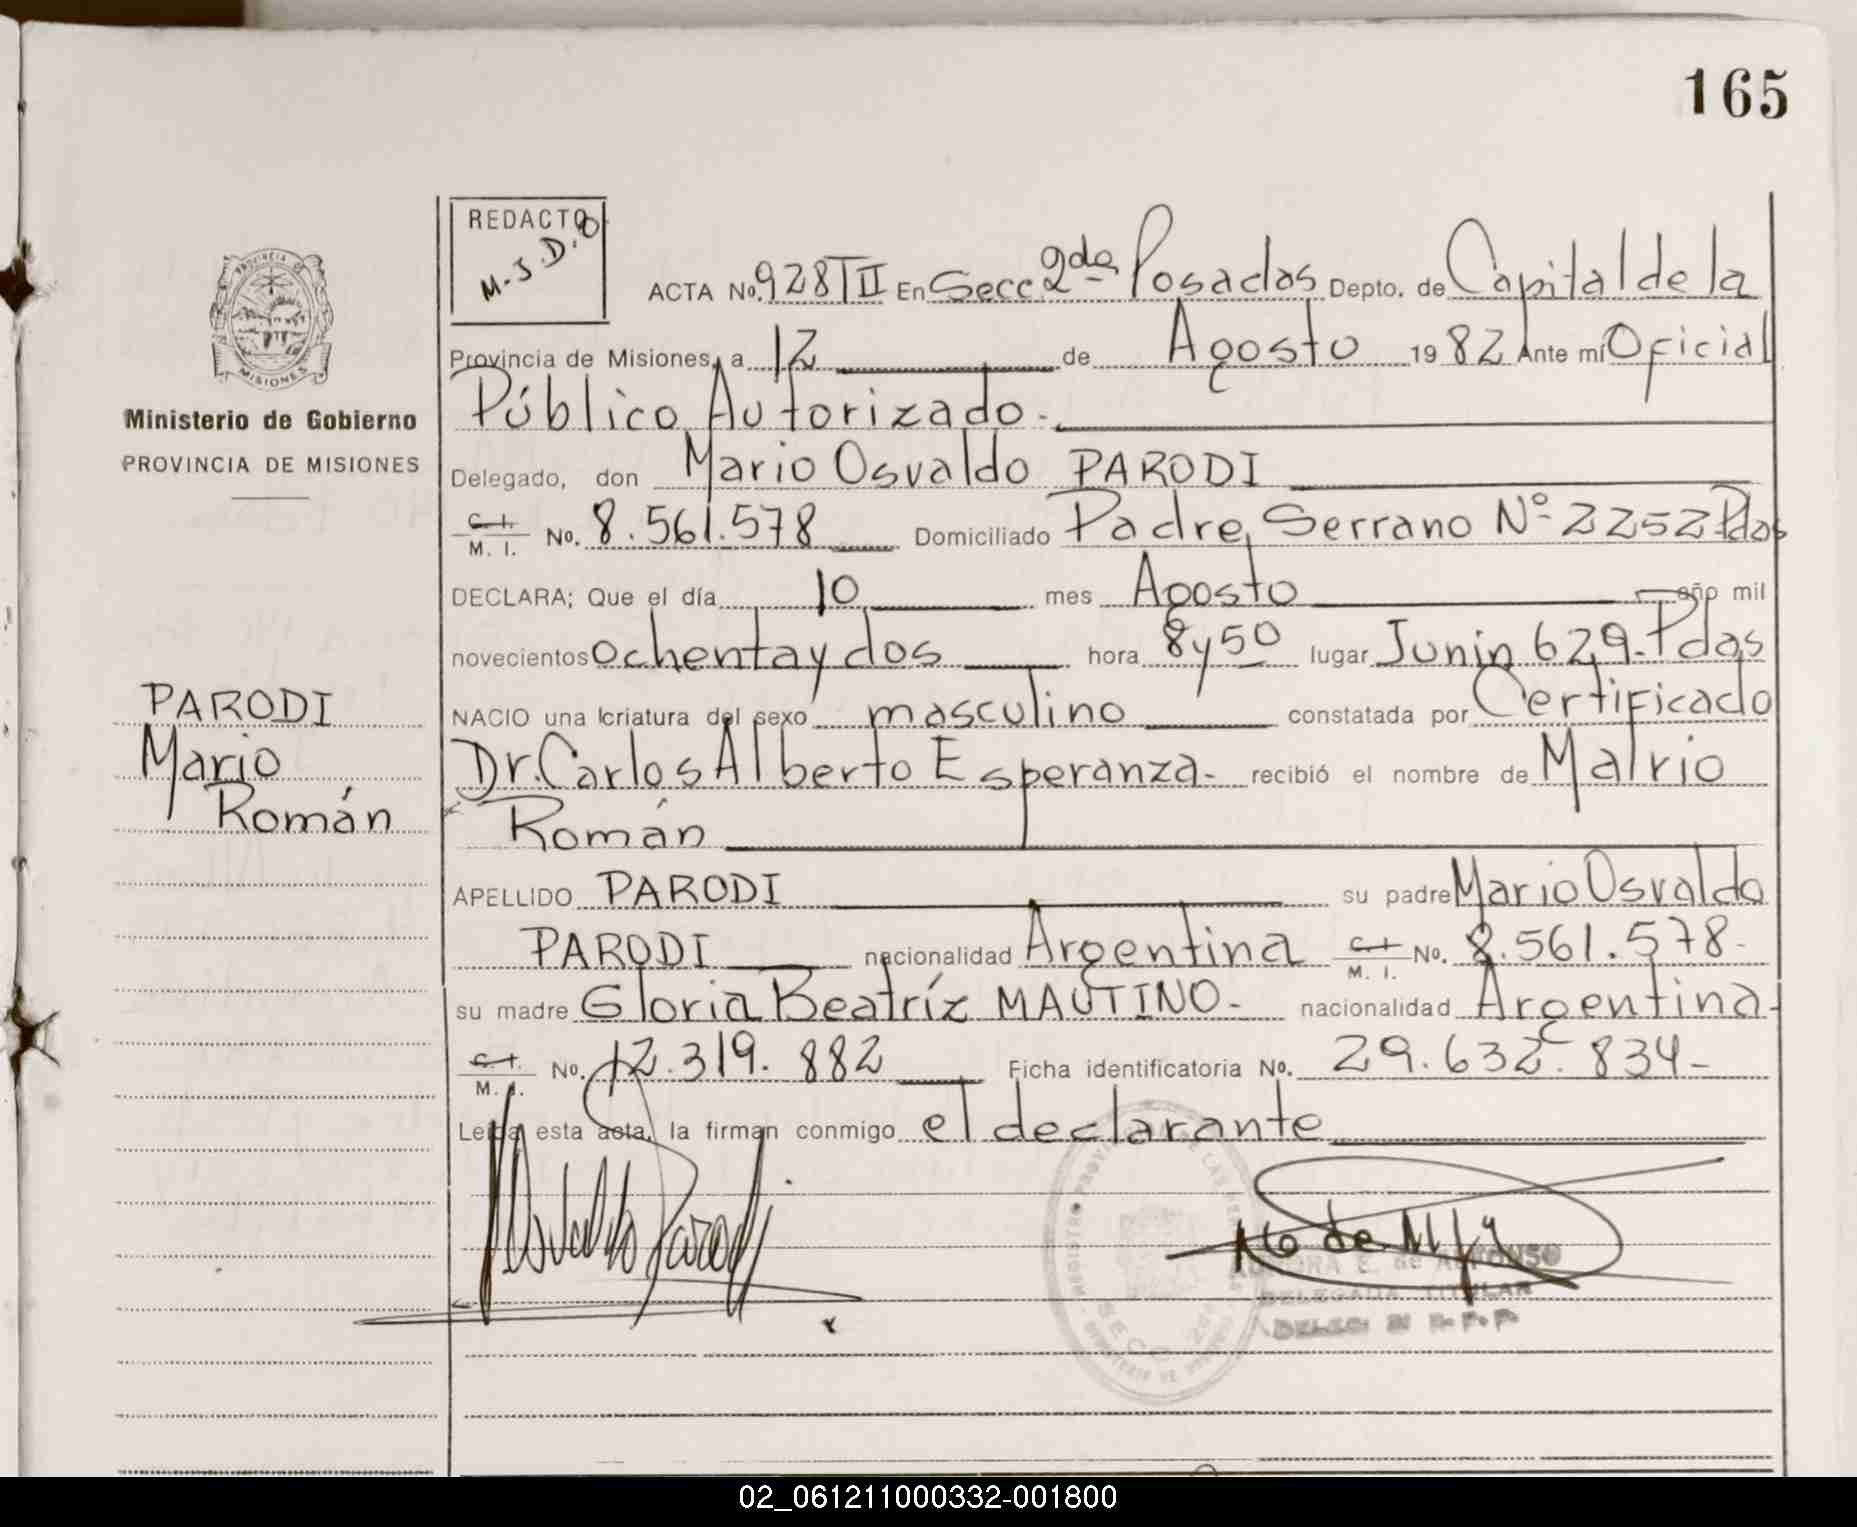 165
REDACTO
M.J.D.O
PROVINCIA DE
MISIONES
Ministerio de Gobierno
PROVINCIA DE MISIONES
PARODI
Mario
Román
ACTA No. 928 T II En Secc 2da Posadas Depto. de Capital de la
Provincia de Misiones, a 12 de Agosto 19 82 Ante mí Oficial
Público Autorizado.-
Delegado, don Mario Osvaldo PARODI
C. I. M. I. No. 8.561.578 Domiciliado Padre Serrano Nº 2252 Pdas
DECLARA; Que el día 10 mes Agosto año mil
novecientos ochenta y dos hora 8 y 50 lugar Junin 629-Pdas
NACIO una criatura del sexo masculino constatada por Certificado
Dr. Carlos Alberto Esperanza- recibió el nombre de Mario
Román
APELLIDO PARODI su padre Mario Osvaldo
PARODI nacionalidad Argentina C. I. M. I. No. 8.561.578-
su madre Gloria Beatríz MAUTINO- nacionalidad Argentina-
C. I. M. I. No. 12.319.882 Ficha identificatoria No. 29.632.834-
Leída esta acta, la firman conmigo el declarante
Osvaldo Parodi
AURORA E. de ALFONSO
DELEGADA TITULAR
SECC. 2da
02_061211000332-001800